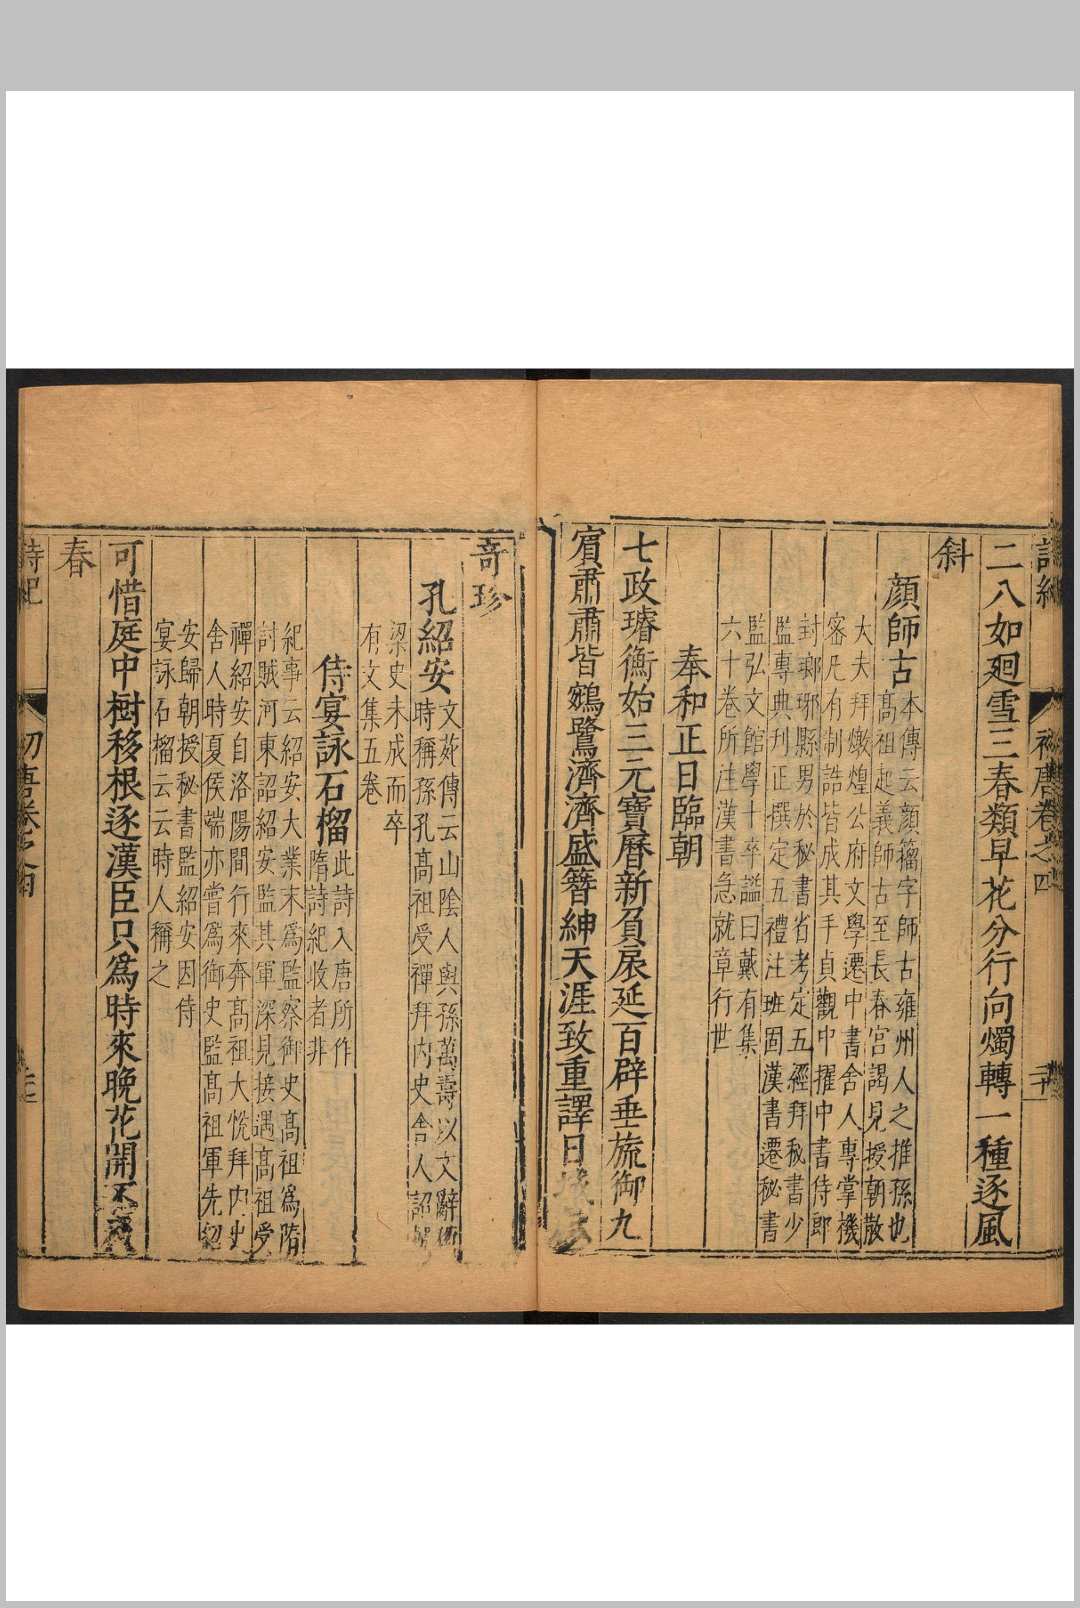 詩紀
初唐卷之四
二十
二八如廻雪三春類早花分行向燭轉一種逐風
斜
顔師古
本傳云顔籀字師古雍州人之推孫也
高祖起義師古至長春宮謁見授朝散
大夫拜燉煌公府文學遷中書舍人專掌機
密凡有制誥皆成其手貞觀中擢中書侍郎
封瑯琊縣男於秘書省考定五經拜秘書少
監專典刊正撰定五禮注班固漢書遷秘書
監弘文館學士卒謚曰戴有集
六十卷所注漢書急就章行世
奉和正日臨朝
七政璿衡始三元寶曆新負扆延百辟垂旒御九
賓肅肅皆鵷鷺濟濟盛簪紳天涯致重譯日域
奇珍
孔紹安
文苑傳云山陰人與孫萬壽以文辭
時稱孫孔高祖受禪拜内史舍人詔
梁史未成而卒
有文集五卷
侍宴詠石榴
此詩入唐所作
隋詩紀收者非
紀事云紹安大業末爲監察御史高祖爲隋
討賊河東詔紹安監其軍深見接遇高祖受
禪紹安自洛陽間行來奔高祖大恱拜内史
舍人時夏侯端亦嘗爲御史監高祖軍先紹
安歸朝授秘書監紹安因侍
宴詠石榴云云時人稱之
可惜庭中樹移根逐漢臣只爲時來晚花開不
春
詩紀
初唐卷之四